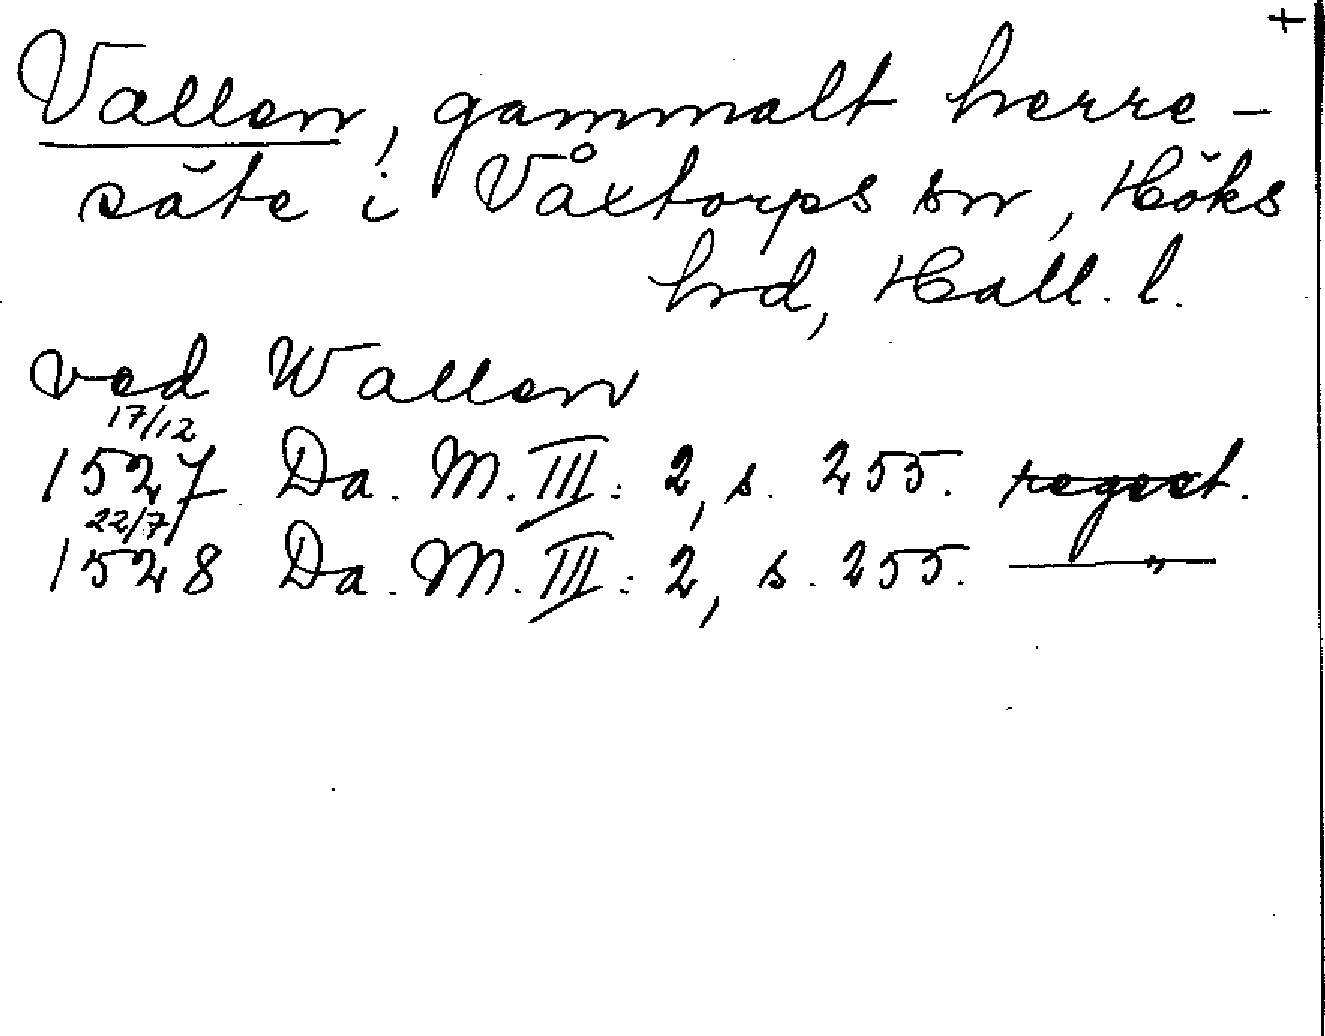 +
Vallen, gammalt herre-
säte i Våxtorps sn, Höks
hrd, Hall. l.
ved Wallen
17/12
1527 Da. M. III: 2, s. 255. regest.
22/7
1528 Da. M. III: 2, s. 255. —"—